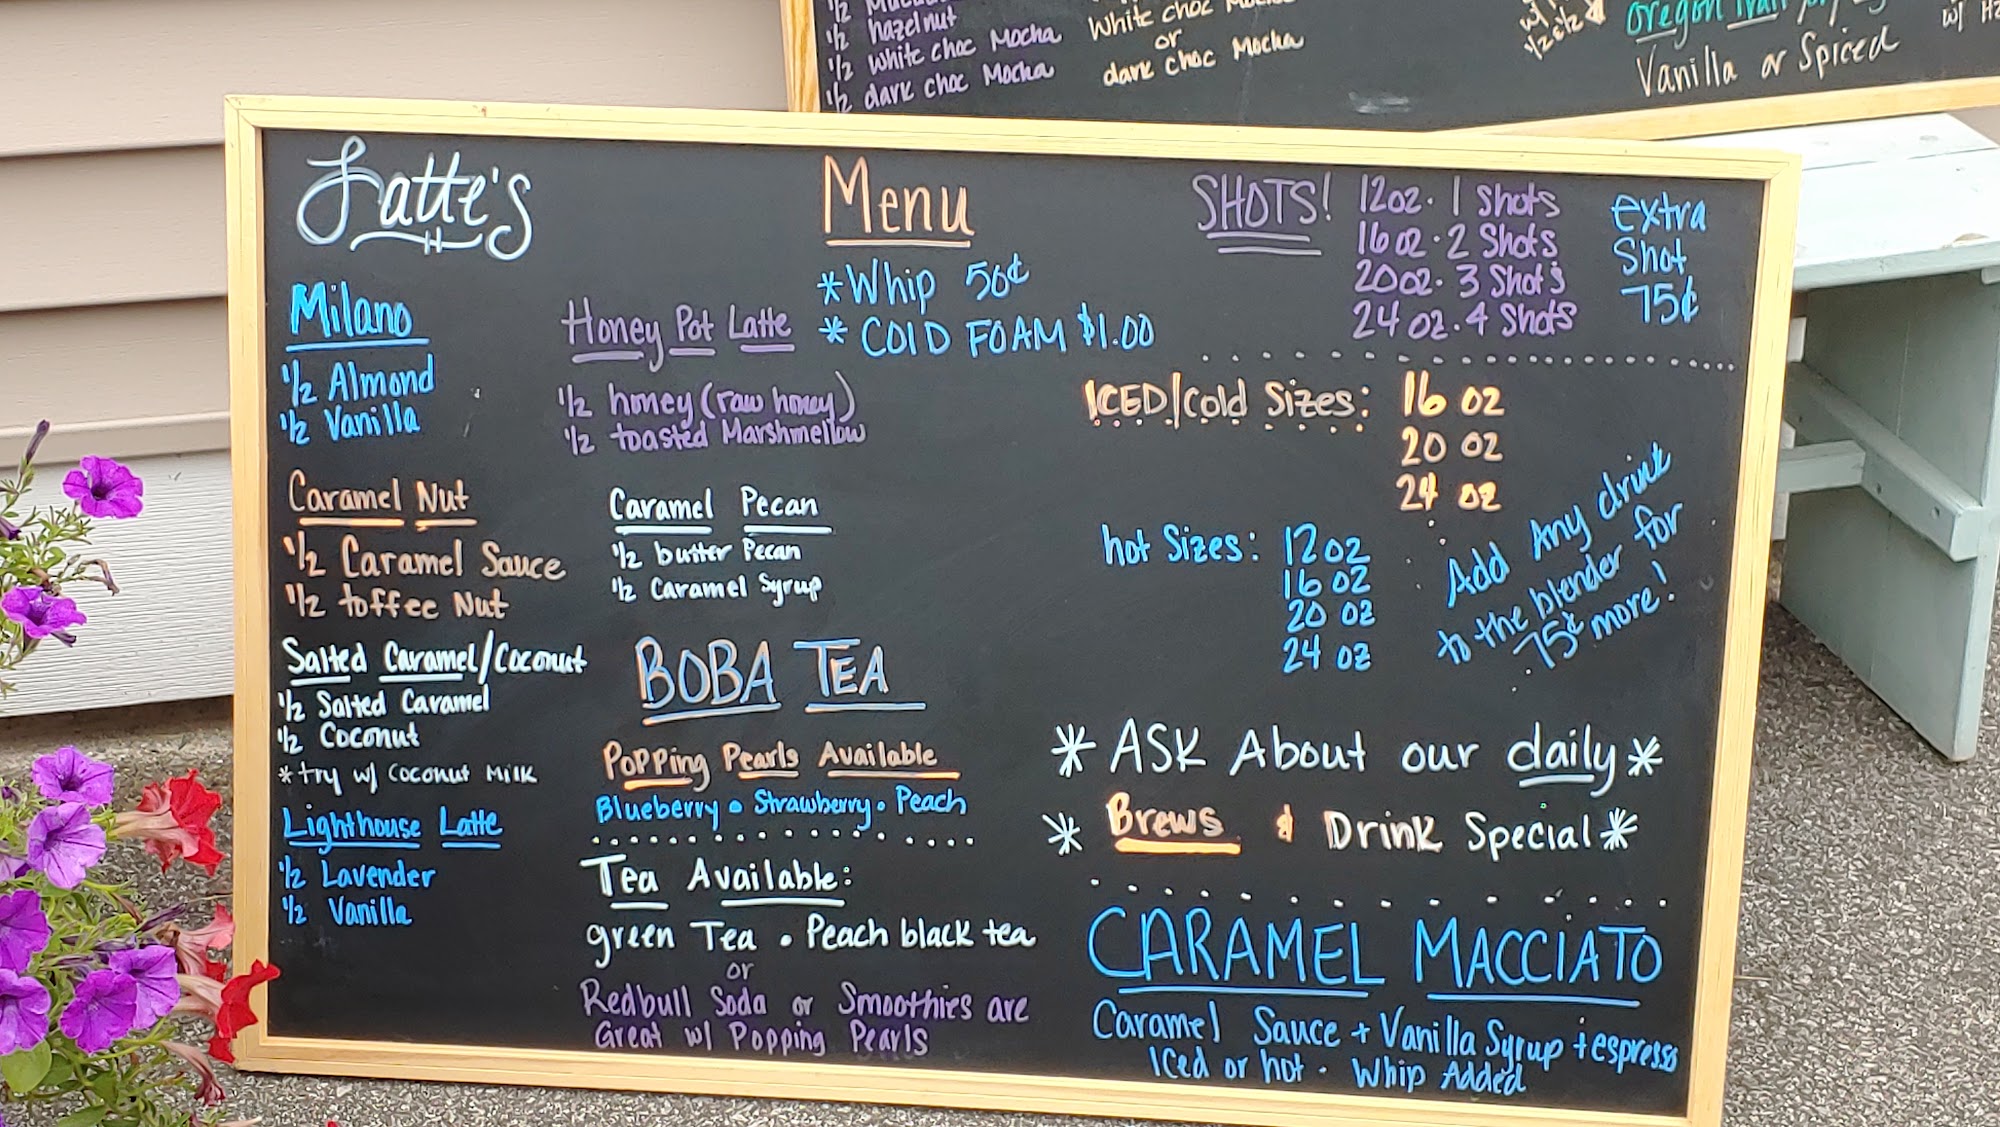 1/2 hazelnut
1/2 White choc Mocha
1/2 dark choc Mocha
White choc Mocha
or
dark choc Mocha
oregon Trail
Vanilla or Spiced
w/
Latte's
Milano
1/2 Almond
1/2 Vanilla
Caramel Nut
1/2 Caramel Sauce
1/2 toffee Nut
Salted Caramel/Coconut
1/2 Salted Caramel
1/2 Coconut
*try w/ Coconut Milk
Lighthouse Latte
1/2 Lavender
1/2 Vanilla
Honey Pot Latte
1/2 honey (raw honey)
1/2 toasted Marshmellow
Caramel Pecan
1/2 butter Pecan
1/2 Caramel Syrup
BOBA TEA
Popping Pearls Available
Blueberry • Strawberry • Peach
Tea Available:
green Tea • Peach black tea
or
Redbull Soda or Smoothies are
Great w/ Popping Pearls
Menu
*Whip 50¢
* COLD FOAM $1.00
SHOTS!
12oz. 1 Shots
16oz. 2 Shots
20oz. 3 Shots
24oz. 4 Shots
extra
Shot
75¢
ICED/Cold Sizes: 16 oz
20 oz
24 oz
hot Sizes: 12oz
16 oz
20 oz
24 oz
Add Any drink
to the blender for
75¢ more!
* ASK About our daily *
* Brews & Drink Special *
CARAMEL MACCIATO
Caramel Sauce + Vanilla Syrup + espresso
Iced or hot • Whip Added